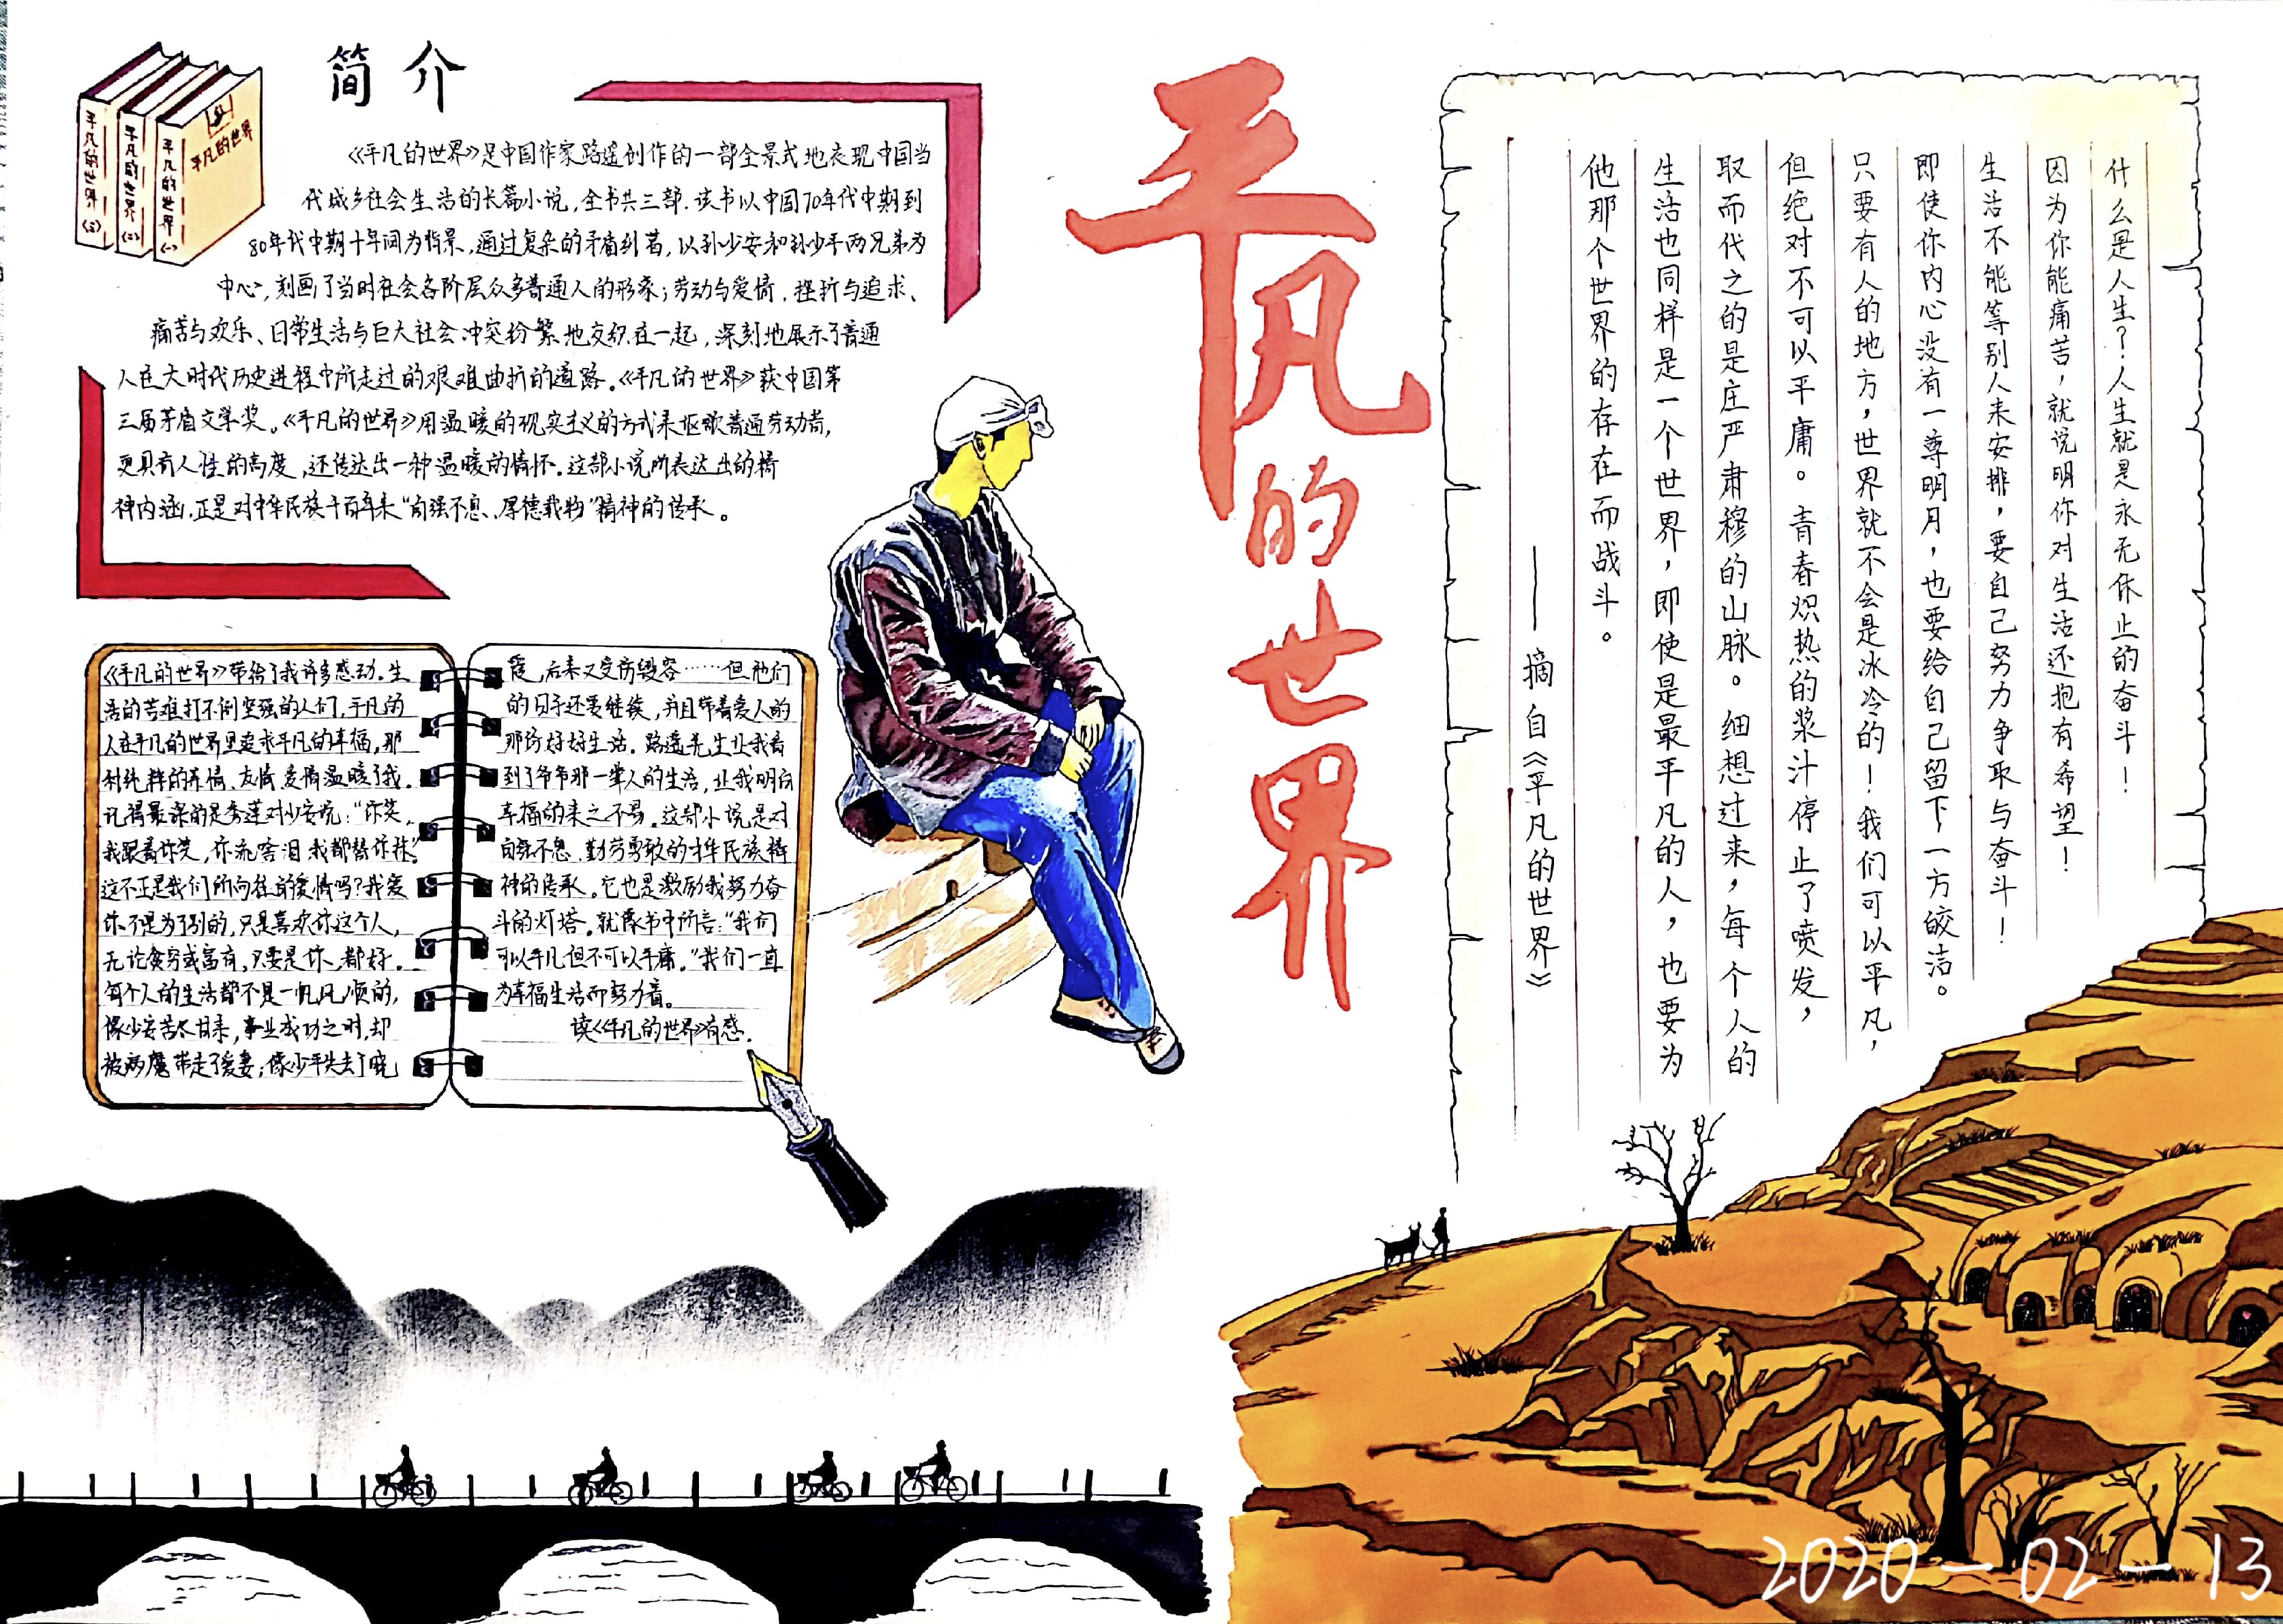 平凡的世界(三)
平凡的世界(二)
平凡的世界(一)
平凡的世界
简介
《平凡的世界》是中国作家路遥创作的一部全景式地表现中国当
代城乡社会生活的长篇小说,全书共三部.该书以中国70年代中期到
80年代中期十年间为背景,通过复杂的矛盾纠葛,以孙少安和孙少平两兄弟为
中心,刻画了当时社会各阶层众多普通人的形象;劳动与爱情、挫折与追求、
痛苦与欢乐、日常生活与巨大社会冲突纷繁地交织在一起,深刻地展示了普通
人在大时代历史进程中所走过的艰难曲折的道路。《平凡的世界》获中国第
三届茅盾文学奖。《平凡的世界》用温暖的现实主义的方式来讴歌普通劳动者,
更具有人性的高度,还传达出一种温暖的情怀。这部小说所表达出的精
神内涵,正是对中华民族千百年来“自强不息、厚德载物”精神的传承。
《平凡的世界》带给了我许多感动。生
活的苦难打不倒坚强的人们,平凡的
人在平凡的世界里追求平凡的幸福,那
份纯粹的亲情、友情、爱情温暖了我。
记得最深的是秀莲对少安说:“你笑,
我跟着你笑,你流啥泪我都替你抹”
这不正是我们所向往的爱情吗?我爱
你不是为了别的,只是喜欢你这个人,
无论贫穷或富有,只要是你,都好。
每个人的生活都不是一帆风顺的,
像少安苦尽甘来,事业成功之时,却
被病魔带走了爱妻;像少平失去了晓
霞,后来又受伤毁容……但他们
的日子还要继续,并且带着爱人的
那份好好生活。路遥先生让我看
到了爷爷那一辈人的生活,让我明白
幸福的来之不易。这部小说是对
自强不息、勤劳勇敢的中华民族精
神的传承。它也是激励我努力奋
斗的灯塔。就像书中所言:“我们
可以平凡但不可以平庸。”我们一直
为幸福生活而努力着。
读《平凡的世界》有感.
平凡的世界
什么是人生?人生就是永无休止的奋斗!
因为你能痛苦,就说明你对生活还抱有希望!
生活不能等别人来安排,要自己努力争取与奋斗!
即使你内心没有一尊明月,也要给自己留下一方皎洁。
只要有人的地方,世界就不会是冰冷的!我们可以平凡,
但绝对不可以平庸。青春炽热的浆汁停止了喷发,
取而代之的是庄严肃穆的山脉。细想过来,每个人的
生活也同样是一个世界,即使是最平凡的人,也要为
他那个世界的存在而战斗。
——摘自《平凡的世界》
2020-02-13